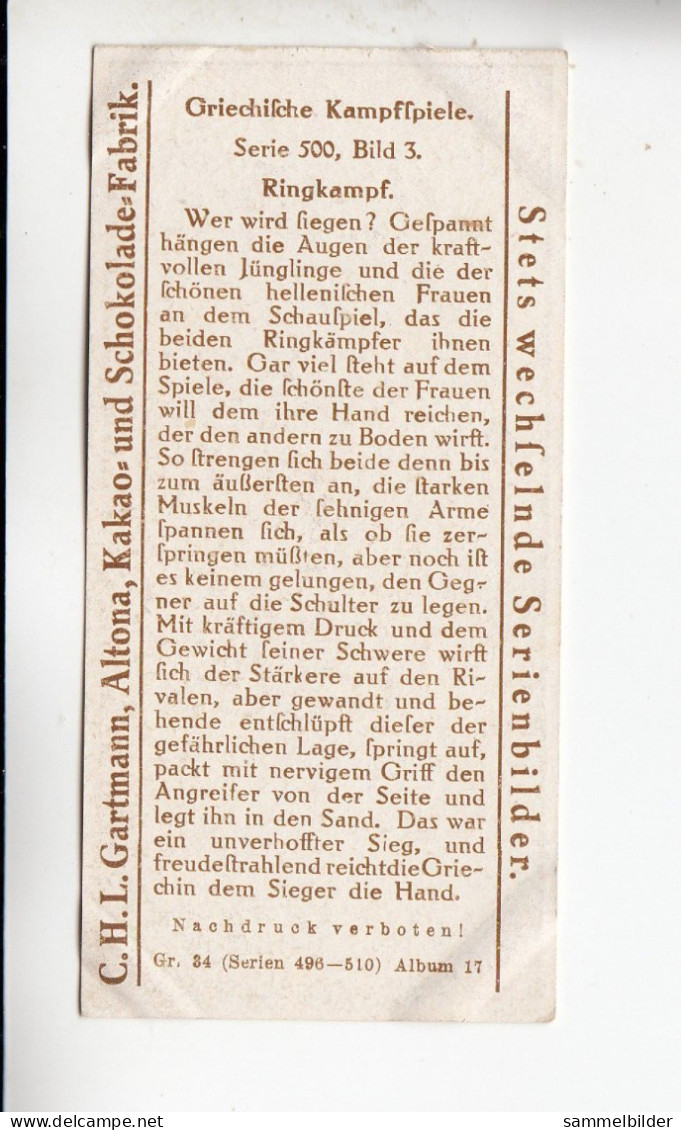 C.H.L. Gartmann, Altona, Kakao- und Schokolade-Fabrik.
Griechiſche Kampfſpiele.
Serie 500, Bild 3.
Ringkampf.
Wer wird ſiegen? Geſpannt
hängen die Augen der kraft-
vollen Jünglinge und die der
ſchönen helleniſchen Frauen
an dem Schauſpiel, das die
beiden Ringkämpfer ihnen
bieten. Gar viel ſteht auf dem
Spiele, die ſchönſte der Frauen
will dem ihre Hand reichen,
der den andern zu Boden wirft.
So ſtrengen ſich beide denn bis
zum äußerſten an, die ſtarken
Muskeln der ſehnigen Arme
ſpannen ſich, als ob ſie zer-
ſpringen müßten, aber noch iſt
es keinem gelungen, den Geg-
ner auf die Schulter zu legen.
Mit kräftigem Druck und dem
Gewicht ſeiner Schwere wirft
ſich der Stärkere auf den Ri-
valen, aber gewandt und be-
hende entſchlüpft dieſer der
gefährlichen Lage, ſpringt auf,
packt mit nervigem Griff den
Angreifer von der Seite und
legt ihn in den Sand. Das war
ein unverhoffter Sieg, und
freudeſtrahlend reicht die Grie-
chin dem Sieger die Hand.
Nachdruck verboten!
Gr. 34 (Serien 496—510) Album 17
Stets wechſelnde Serienbilder.
www.delcampe.net
sammelbilder